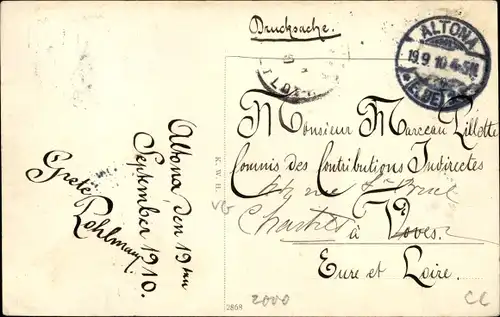 Drucksache.
ALTONA
19.9.10.4-5N
Monsieur Marceau Lillette
Commis des Contributions Indirectes
rue
Chartres
à Voves.
Eure et Loire.
Altona, den 19ten
September 1910.
Grete
Pohlmann
K. V. H.
VG
2868
2000
CC